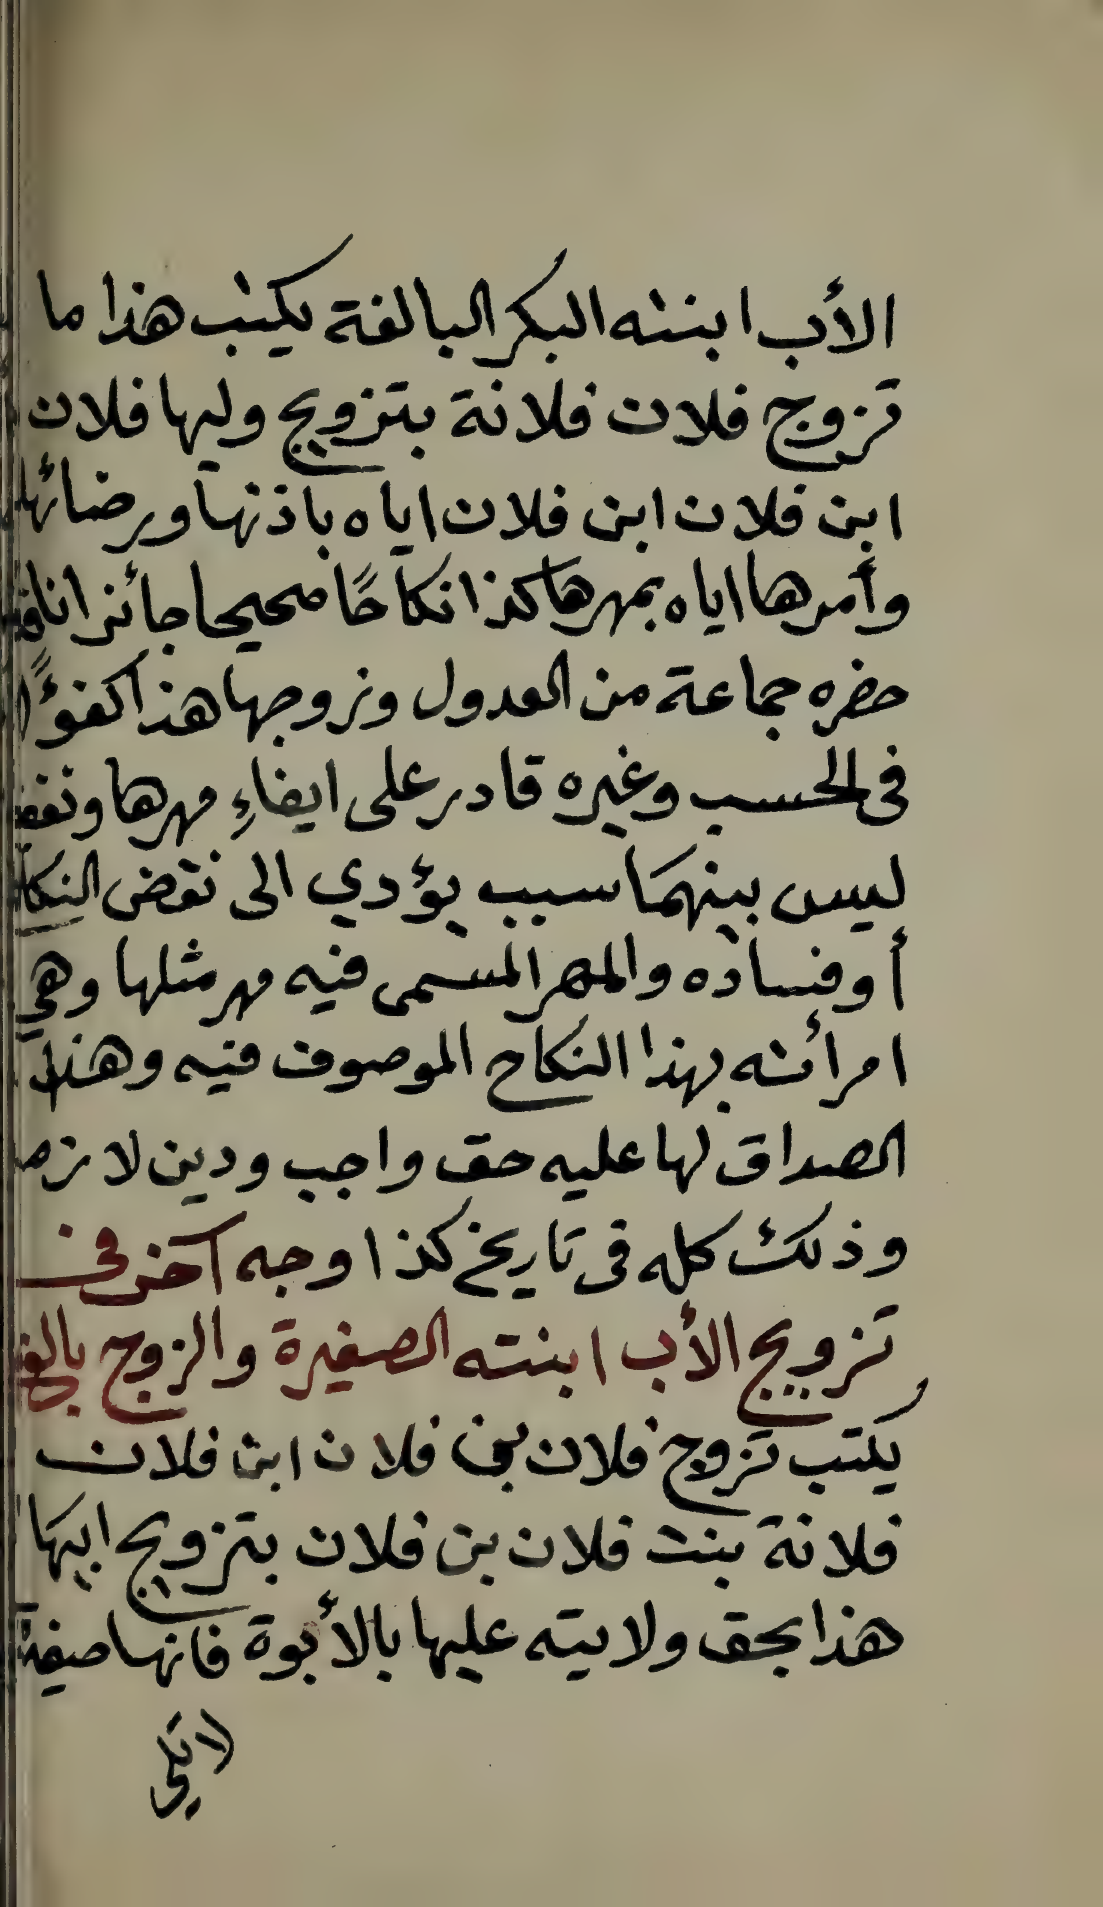 الأب ابنته البكر البالغة يكتب هذا ما
تزوج فلان فلانة بتزويج وليها فلان
ابن فلان ابن فلان اياه باذنها ورضائها
وأمرها اياه بمهرها كذا نكاحًا صحيحا جائزا
حضره جماعة من العدول وزوجها هذا كفؤًا
فى الحسب وغيره قادر على ايفاءِ مهرها
ليس بينهما سبب يؤدي الى نقض النكاح
أو فساده والمهر المسمى فيه مهر مثلها وهي
امرأته بهذا النكاح الموصوف فيه وهذا
الصداق لها عليه حق واجب ودين لازم
وذلك كله فى تاريخ كذا وجه آخر في
تزويج الأب ابنته الصغيرة والزوج بالغ
يكتب تزوج فلان بن فلان ابن فلان
فلانة بنت فلان بن فلان بتزويج ابيها
هذا بحق ولايته عليها بالأبوة فانها صغيرة
لا تلى